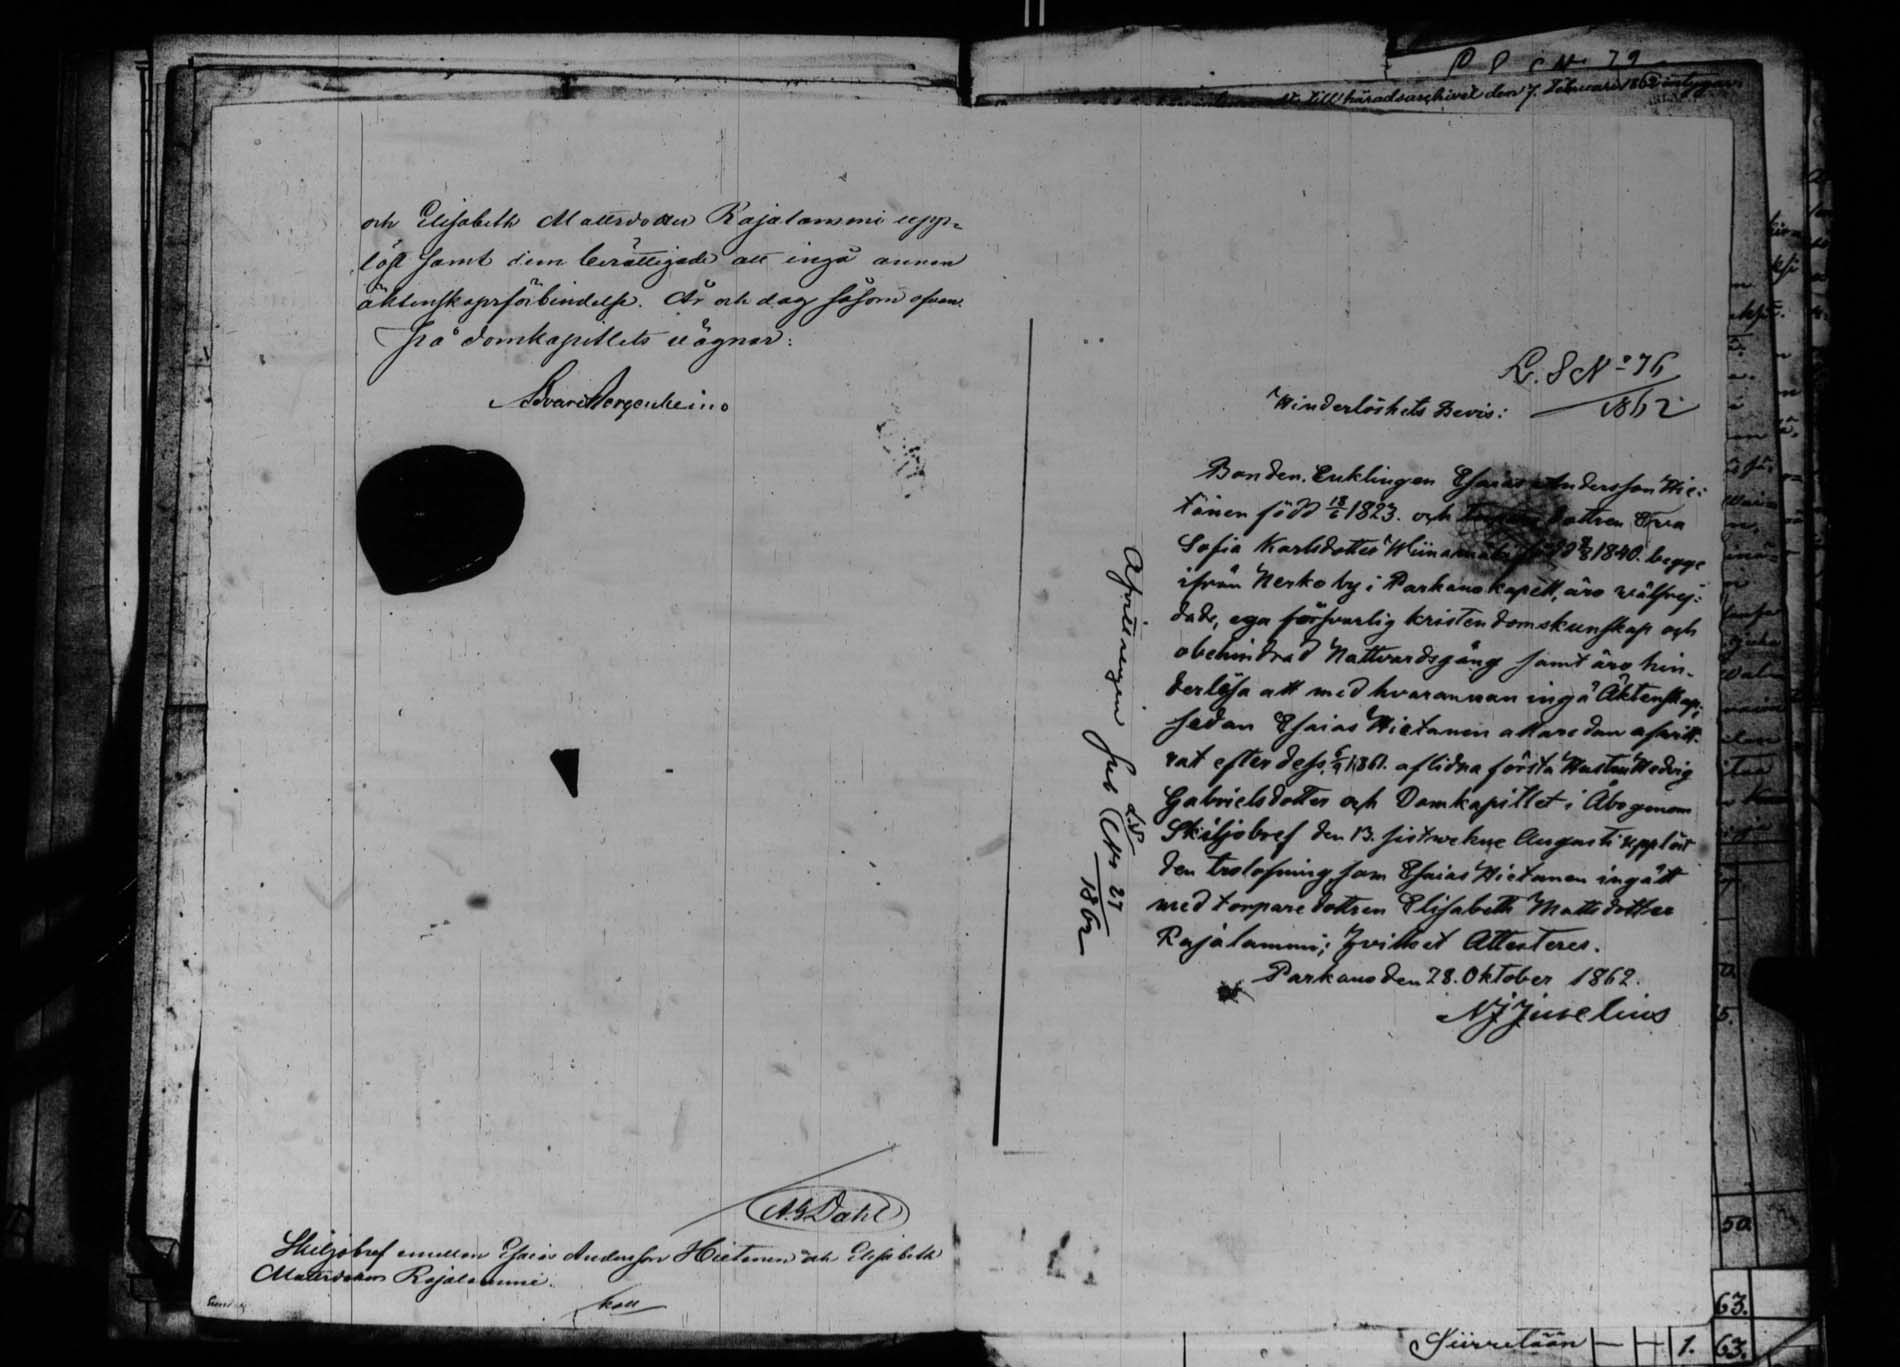 och Elisabeth Mattsdotter Rajalammi upp-
löst samt dem berättigade att ingå annan
äktenskapsförbindelse. År och dag såsom ofvan.
På domkapitlets vägnar:
Edvard Bergenheim
A.G. Dahl
Skiljobref emellan Esaias Andersson Hietanen och Elisabeth
Mattsdotter Rajalammi.
till häradsarchivet den 7. Februari 186
L. S. No 76
1862
Hinderlöshets Bevis:
Bonden, Enklingen Esaias Andersson Hie-
tanen född 18/6 1823. och dottren Eva
Sofia Karlsdotter född 1840. begge
ifrån Nerko by i Parkano kapell, äro välfrej-
dade, ega försvarlig kristendomskunskap och
obehindrad Nattvardsgång samt äro hin-
derlösa att med hvarannan ingå Äktenskap;
sedan Esaias Hietanen allaredan afvitt-
rat efter dess 1861. aflidna första Hustru Hedvig
Gabrielsdotter och Domkapitlet i Åbo genom
Skiljobref den 13. sistvekne Augusti upplöst
den trolofning som Esaias Hietanen ingått
med torparedottren Elisabeth Mattsdotter
Rajalammi; hvilket Attesteras.
Parkano den 28. Oktober 1862.
NJ Juselius
Afvittringen sub L.S. No 27
1862
Siirretään 1. 63.
50
63.